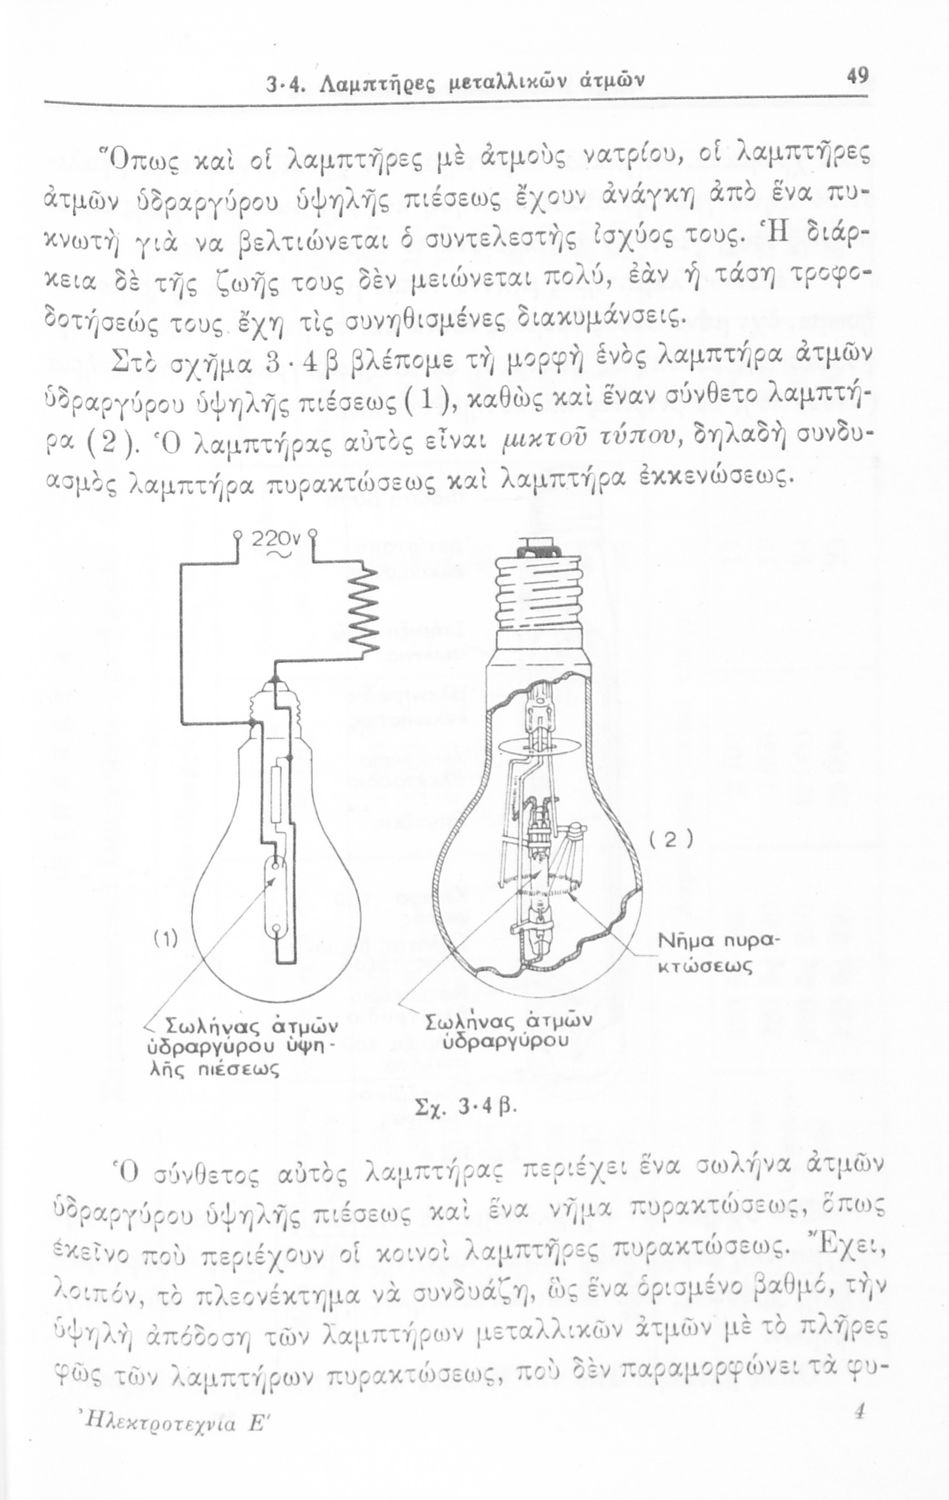 3·4. Λαμπτῆρες μεταλλικῶν ἀτμῶν 49
Ὅπως καὶ οἱ λαμπτῆρες μὲ ἀτμοὺς νατρίου, οἱ λαμπτῆρες
ἀτμῶν ὑδραργύρου ὑψηλῆς πιέσεως ἔχουν ἀνάγκη ἀπὸ ἕνα πυ-
κνωτὴ γιὰ να βελτιώνεται ὁ συντελεστὴς ἰσχύος τους. Ἡ διάρ-
κεια δὲ τῆς ζωῆς τους δὲν μειώνεται πολύ, ἐὰν ἡ τάση τροφο-
δοτήσεώς τους ἔχη τὶς συνηθισμένες διακυμάνσεις.
Στὸ σχῆμα 3·4β βλέπομε τὴ μορφὴ ἑνὸς λαμπτήρα ἀτμῶν
ὑδραργύρου ὑψηλῆς πιέσεως (1), καθὼς καὶ ἕναν σύνθετο λαμπτή-
ρα (2). Ὁ λαμπτήρας αὐτὸς εἶναι μικτοῦ τύπου, δηλαδὴ συνδυ-
ασμὸς λαμπτήρα πυρακτώσεως καὶ λαμπτήρα ἐκκενώσεως.
220v
~
(2)
(1)
Νῆμα πυρα-
κτώσεως
Σωλήνας ἀτμῶν
ὑδραργύρου ὑψη-
λῆς πιέσεως
Σωλήνας ἀτμῶν
ὑδραργύρου
Σχ. 3·4β.
Ὁ σύνθετος αὐτὸς λαμπτήρας περιέχει ἕνα σωλήνα ἀτμῶν
ὑδραργύρου ὑψηλῆς πιέσεως καὶ ἕνα νῆμα πυρακτώσεως, ὅπως
ἐκεῖνο ποὺ περιέχουν οἱ κοινοὶ λαμπτῆρες πυρακτώσεως. Ἔχει,
λοιπόν, τὸ πλεονέκτημα νὰ συνδυάζη, ὣς ἕνα ὁρισμένο βαθμό, τὴν
ὑψηλὴ ἀπόδοση τῶν λαμπτήρων μεταλλικῶν ἀτμῶν μὲ τὸ πλῆρες
φῶς τῶν λαμπτήρων πυρακτώσεως, ποὺ δὲν παραμορφώνει τὰ φυ-
Ἠλεκτροτεχνία Ε' 4